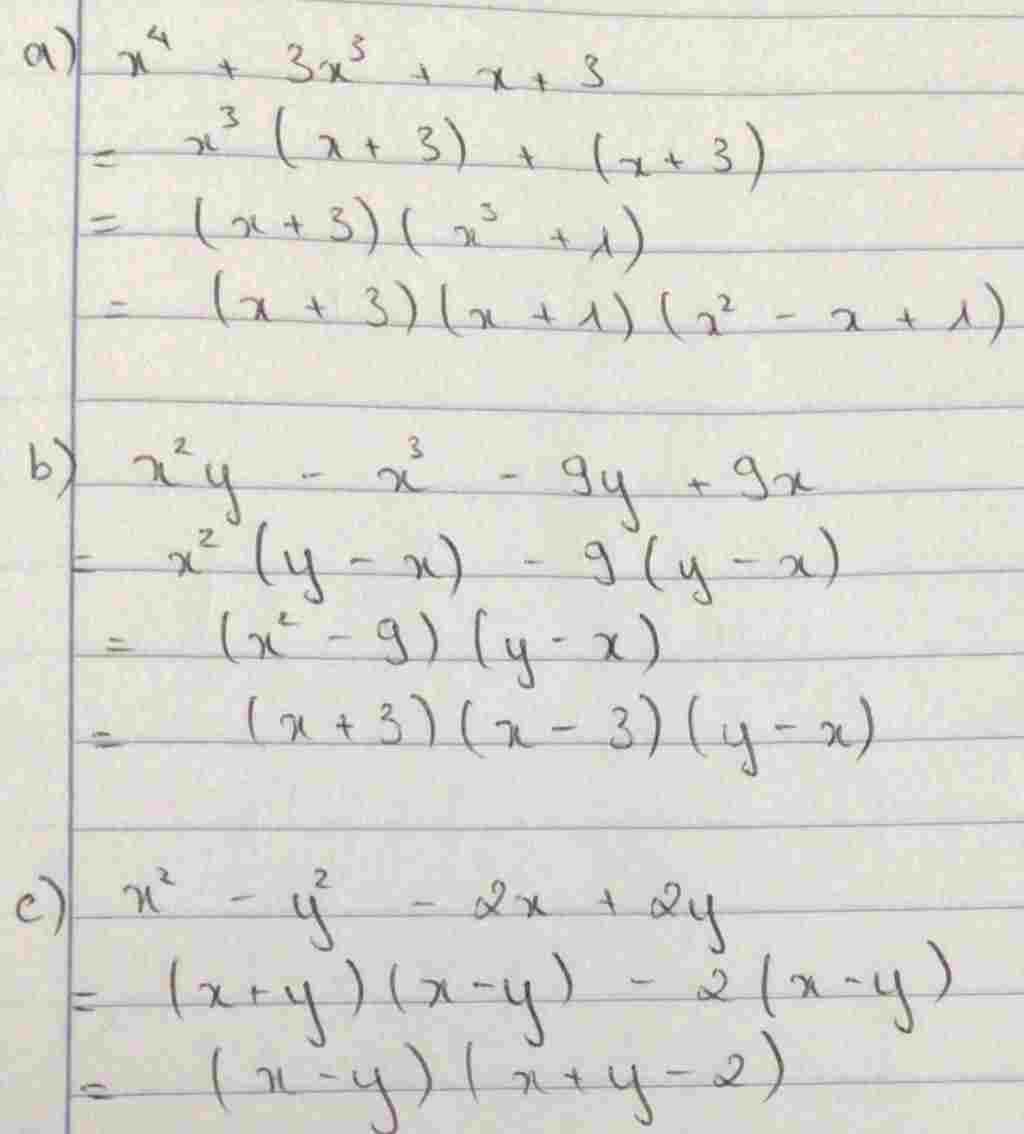 a) x⁴ + 3x³ + x + 3
= x³ (x + 3) + (x + 3)
= (x + 3) (x³ + 1)
= (x + 3) (x + 1) (x² - x + 1)
b) x²y - x³ - 9y + 9x
= x² (y - x) - 9 (y - x)
= (x² - 9) (y - x)
= (x + 3) (x - 3) (y - x)
c) x² - y² - 2x + 2y
= (x + y) (x - y) - 2 (x - y)
= (x - y) (x + y - 2)